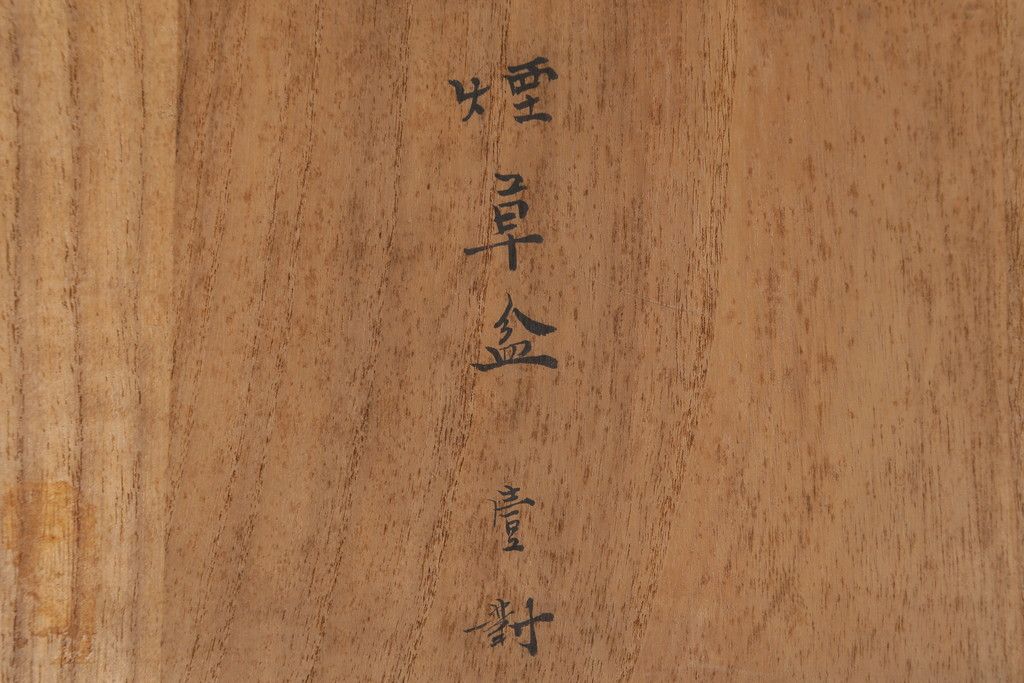 煙草盆 壹對